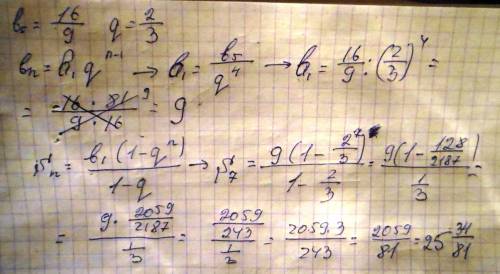 b₅ = 16/9   q = 2/3
bₙ = b₁ qⁿ⁻¹ → b₁ = b₅/q⁴ → b₁ = 16/9 : (2/3)⁴ =
= 16 · 81 9/9 · 16 = 9
Sₙ = b₁(1-qⁿ)/1-q → S₇ = 9(1 - 2⁷/3)/1 - 2/3 = 9(1 - 128/2187)/1/3 =
= 9 · 2059/2187/1/3 = 2059/243/1/3 = 2059·3/243 = 2059/81 = 25 34/81